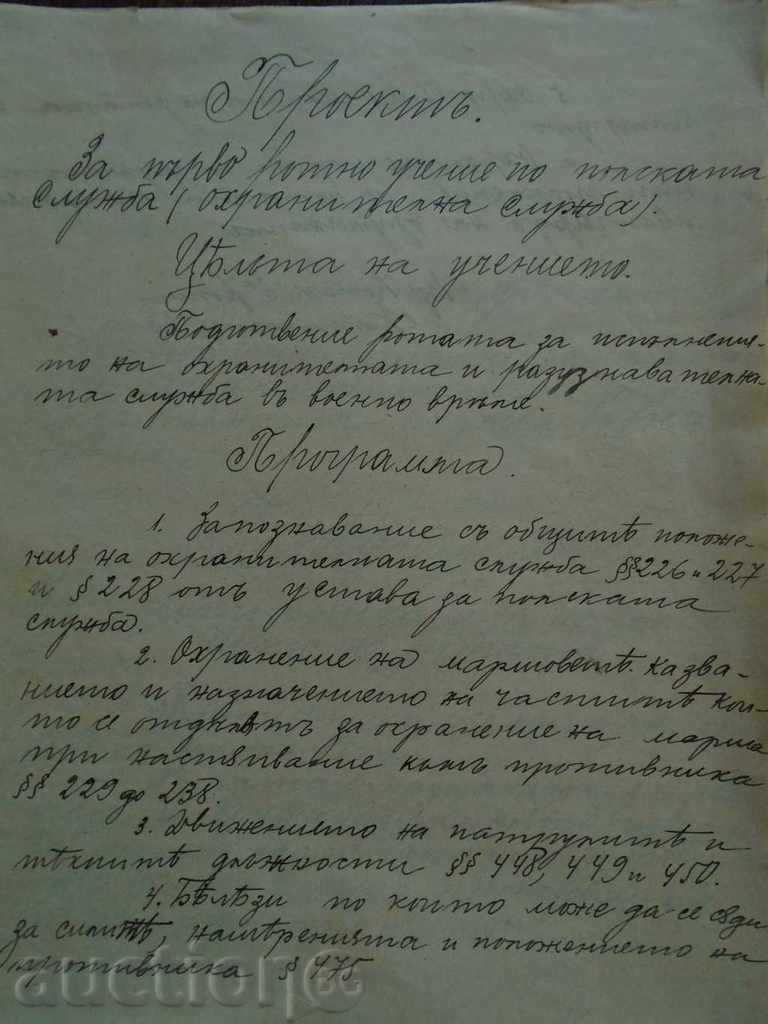 Проектъ.
За първо ротно учение по полската
служба (охранителна служба).
Цѣльта на учението.
Подготвение ротата за испълнения-
то на охранителната и разузнавателна-
та служба въ военно врѣме.
Програмта.
1. Запознавание съ общитѣ положе-
ния на охранителната служба §§226 и 227
и § 228 отъ устава за полската
служба.
2. Охранение на маршоветѣ. казва-
нието и назначението на частитѣ кои-
то се отдѣлятъ за охранение на марша
при настѫпвание къмъ противника
§§ 229 до 238.
3. Движението на патрулитѣ и
тѣхнитѣ длъжности §§ 448, 449 и 450.
4. Бѣлѣзи по които може да се сѫди
за силитѣ, намѣренията и положението на
противника § 475
auction